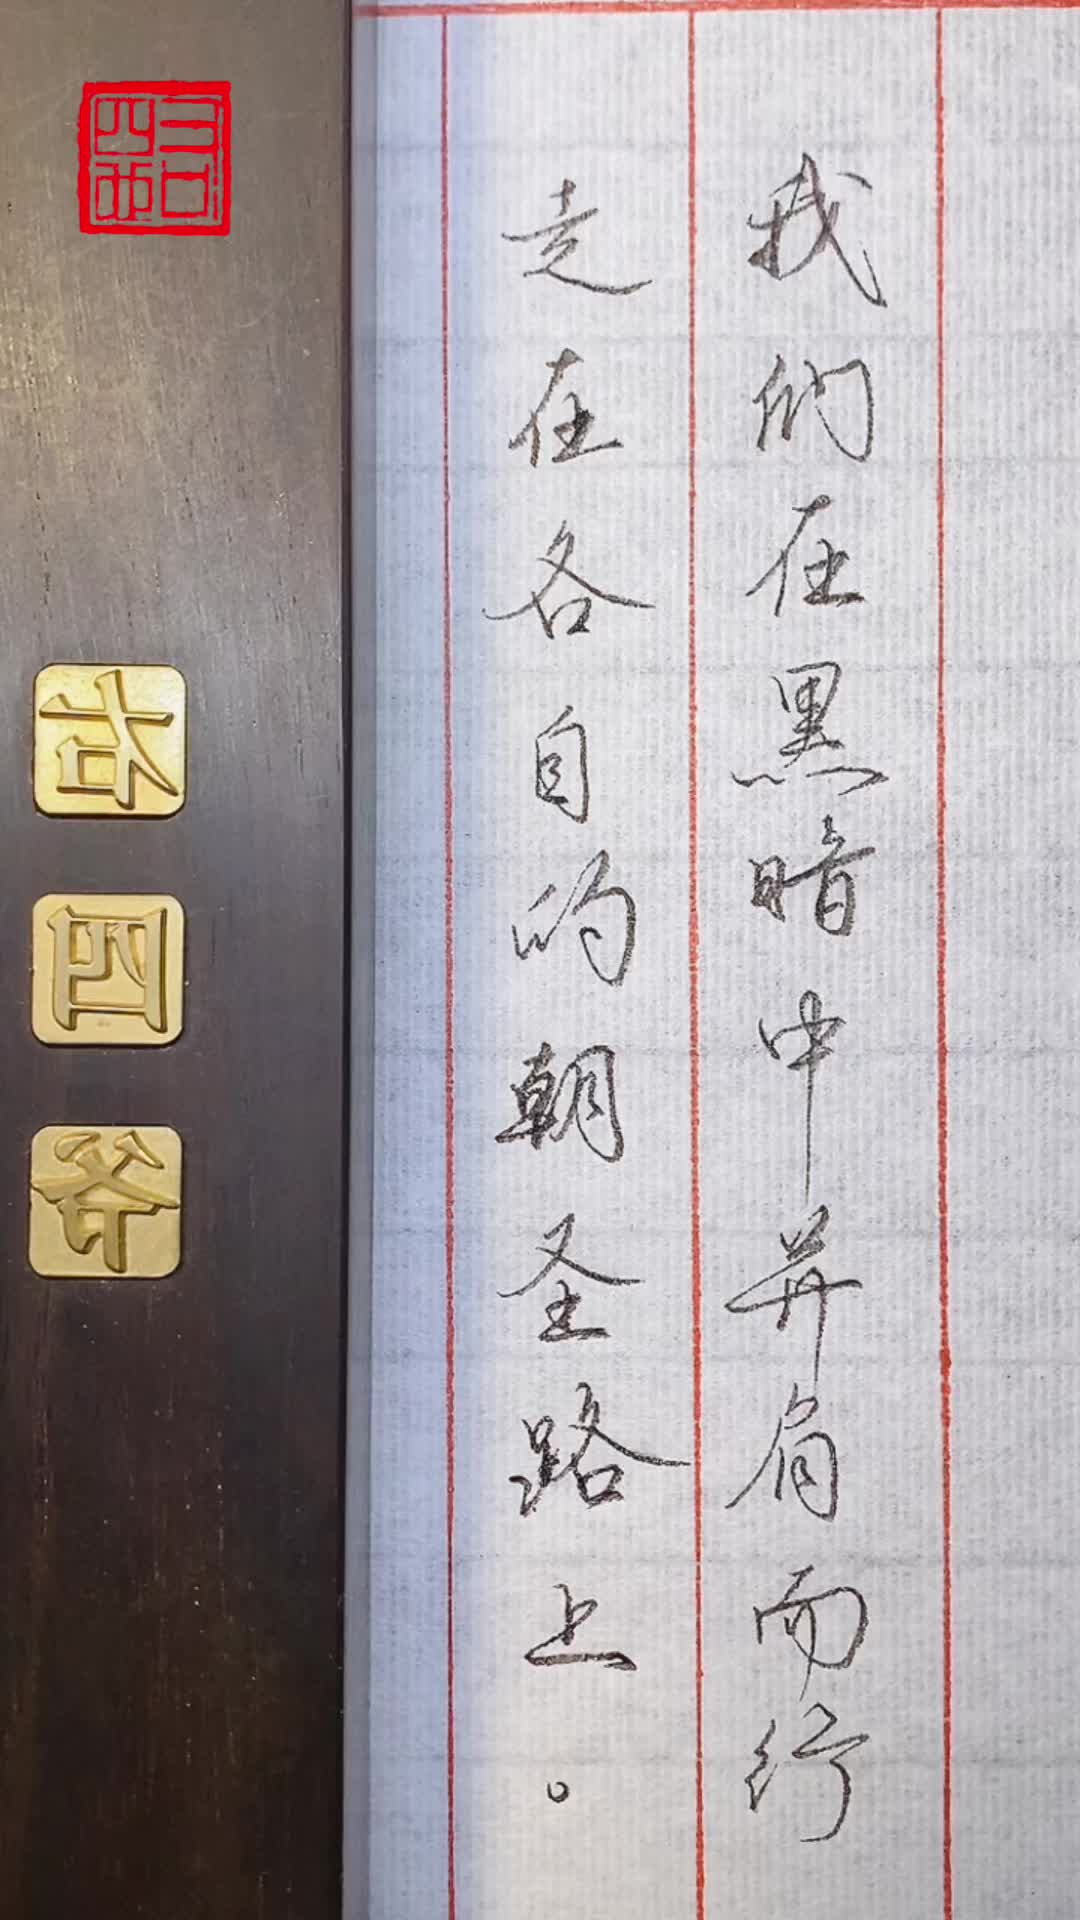 我们在黑暗中并肩而行
走在各自的朝圣路上。
右四爷